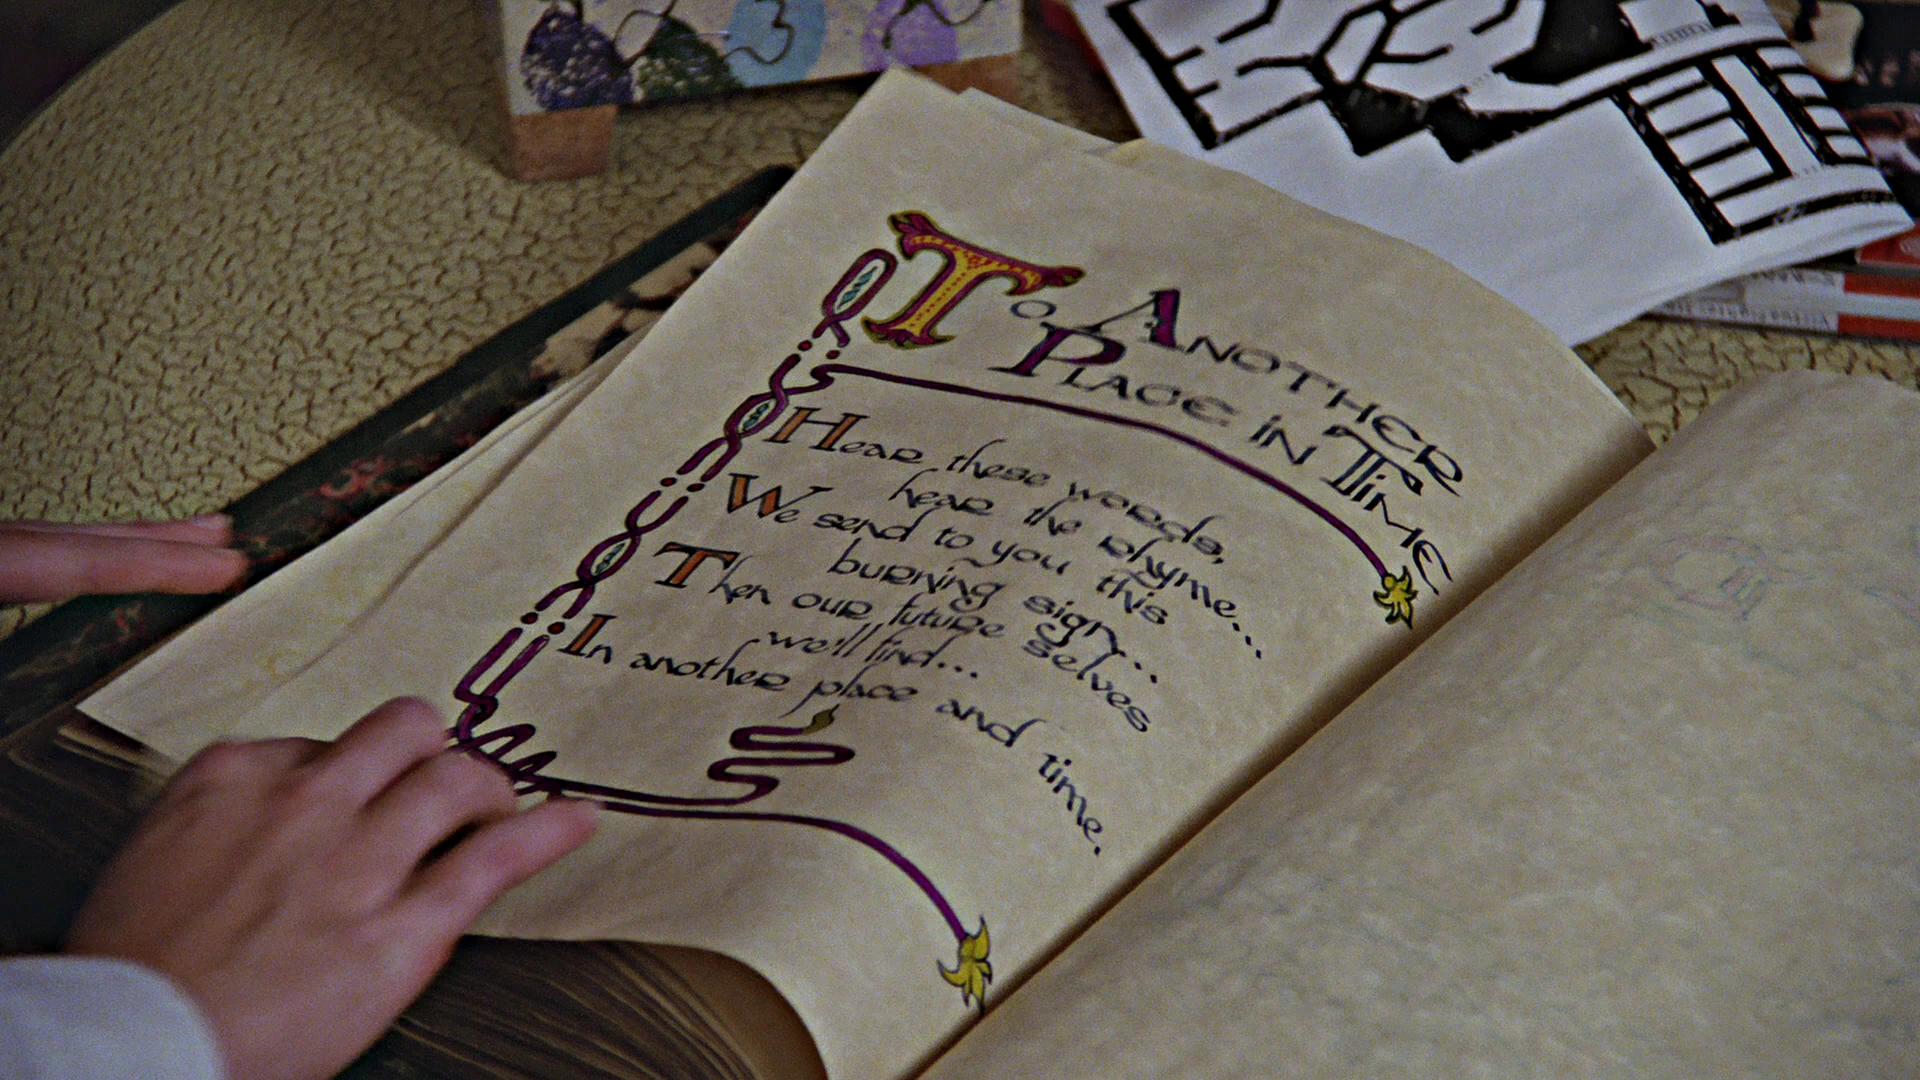 To Another
Place in Time
Hear these words,
hear the rhyme...
We send to you this
burning sign...
Then our future selves
we'll find...
In another place and time.
3